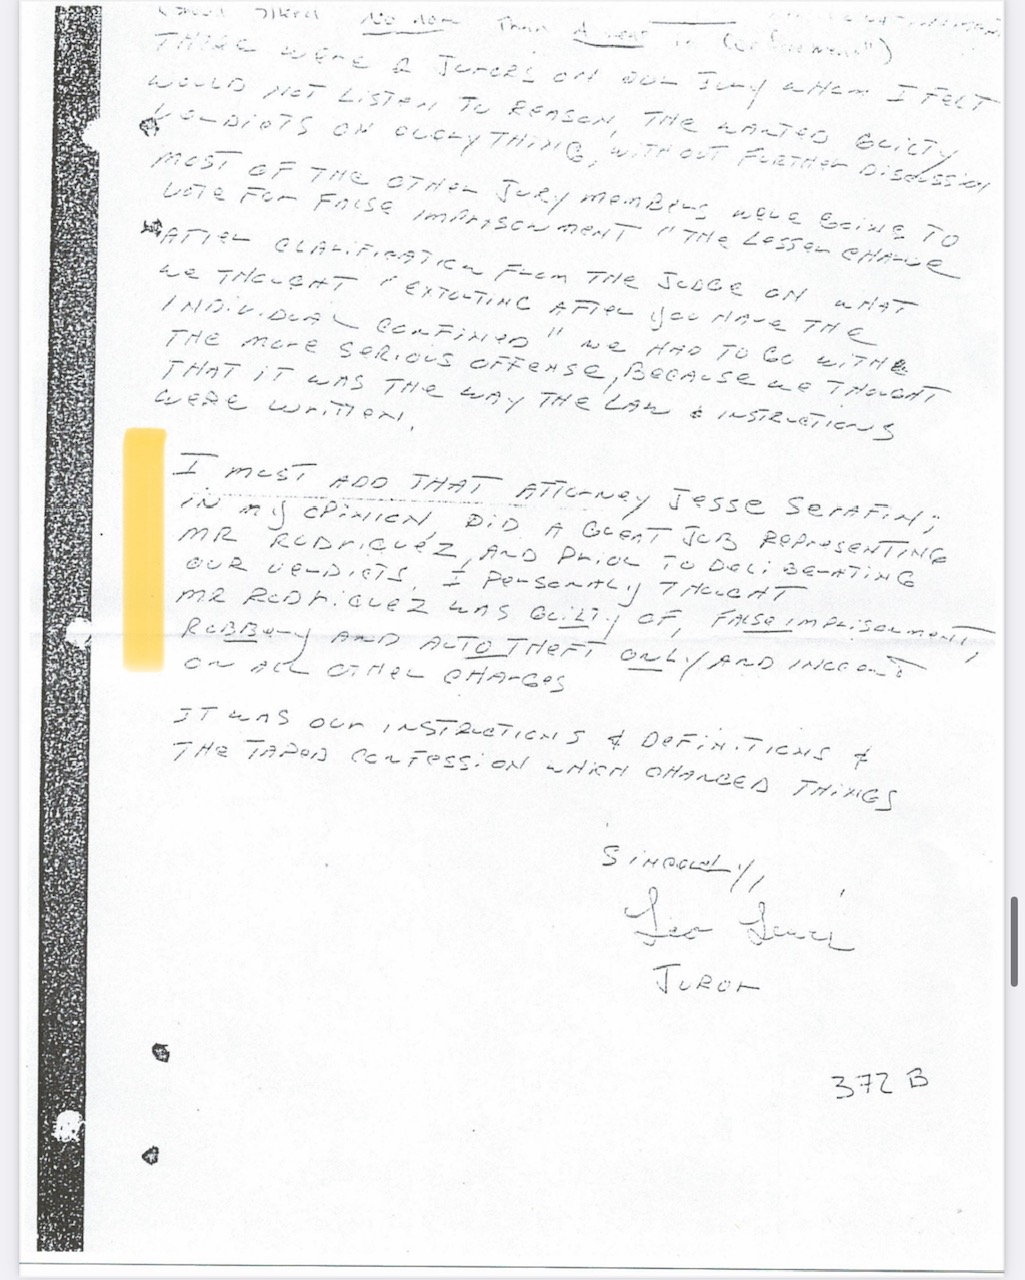 No more than A year in
THERE WERE 2 JURORS ON OUR JURY WHOM I FELT
WOULD NOT LISTEN TO REASON, THE WANTED GUILTY
VERDICTS ON EVERYTHING, WITHOUT FURTHER DISCUSSION
MOST OF THE OTHER JURY MEMBERS WERE GOING TO
VOTE FOR FALSE IMPRISONMENT "THE LESSER CHARGE
AFTER CLARIFICATION FROM THE JUDGE ON WHAT
WE THOUGHT "EXTORTING AFTER YOU HAVE THE
INDIVIDUAL CONFINED" WE HAD TO GO WITH
THE MORE SERIOUS OFFENSE, BECAUSE WE THOUGHT
THAT IT WAS THE WAY THE LAW & INSTRUCTIONS
WERE WRITTEN.
I MUST ADD THAT ATTORNEY JESSE SERAFIN;
IN MY OPINION, DID A GREAT JOB REPRESENTING
MR RODRIQUEZ, AND PRIOR TO DELIBERATING
OUR VERDICTS, I PERSONALLY THOUGHT
MR RODRIQUEZ WAS GUILTY OF, FALSE IMPRISONMENT,
ROBBERY AND AUTO THEFT ONLY AND INNOCENT
ON ALL OTHER CHARGES
IT WAS OUR INSTRUCTIONS & DEFINITIONS &
THE TAPED CONFESSION WHICH CHANGED THINGS
SINCERELY,
JUROR
372 B